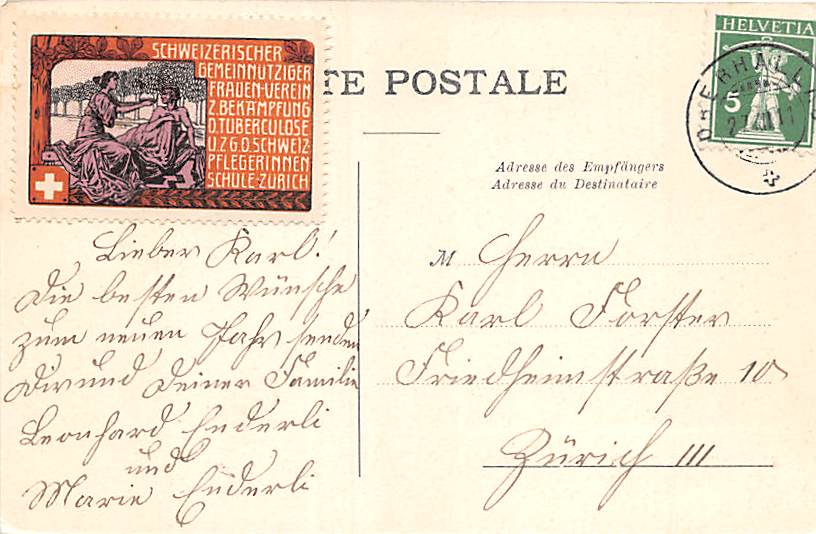 SCHWEIZERISCHER
GEMEINNÜTZIGER
FRAUEN-VEREIN
Z. BEKÄMPFUNG
D. TUBERCULOSE
U. Z. G. D. SCHWEIZ.
PFLEGERINNEN
SCHULE-ZÜRICH
TE POSTALE
HELVETIA
5
Adresse des Empfängers
Adresse du Destinataire
Lieber Karl!
Die besten Wünsche
zum neuen Jahr senden
Dir und Deiner Familie
Leonhard Enderli
und
Marie Enderli
M Herrn
Karl Forster
Friedheimstraße 10
Zürich III